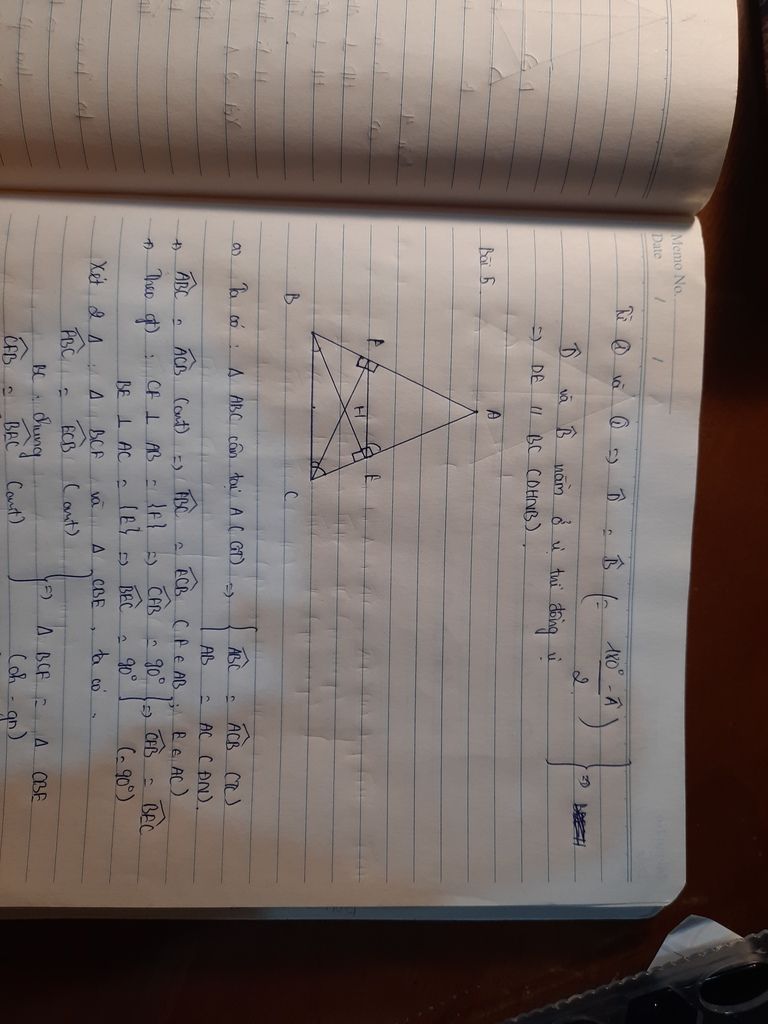 Memo No.
Date / /
Từ ① và ② => D̂ = B̂ (= (180° - Â) / 2) } =>
D̂ và B̂ nằm ở vị trí đồng vị
=> DE // BC (DHNB).
Bài 5
A
F E
H
B C
a) Ta có : Δ ABC cân tại A (GT) => { ABC = ACB (TC)
AB = AC (ĐN).
+) ABC = ACB (cmt) => FBC = ECB (F ∈ AB ; E ∈ AC)
+) Theo gt : CF ⊥ AB = {F} => CFB = 90° } => CFB = BEC
BE ⊥ AC = {E} => BEC = 90° (= 90°)
Xét 2 Δ : Δ BCF và Δ CBE, ta có :
FBC = ECB (cmt)
BC : chung } => Δ BCF = Δ CBE
CFB = BEC (cmt) (ch - gn)